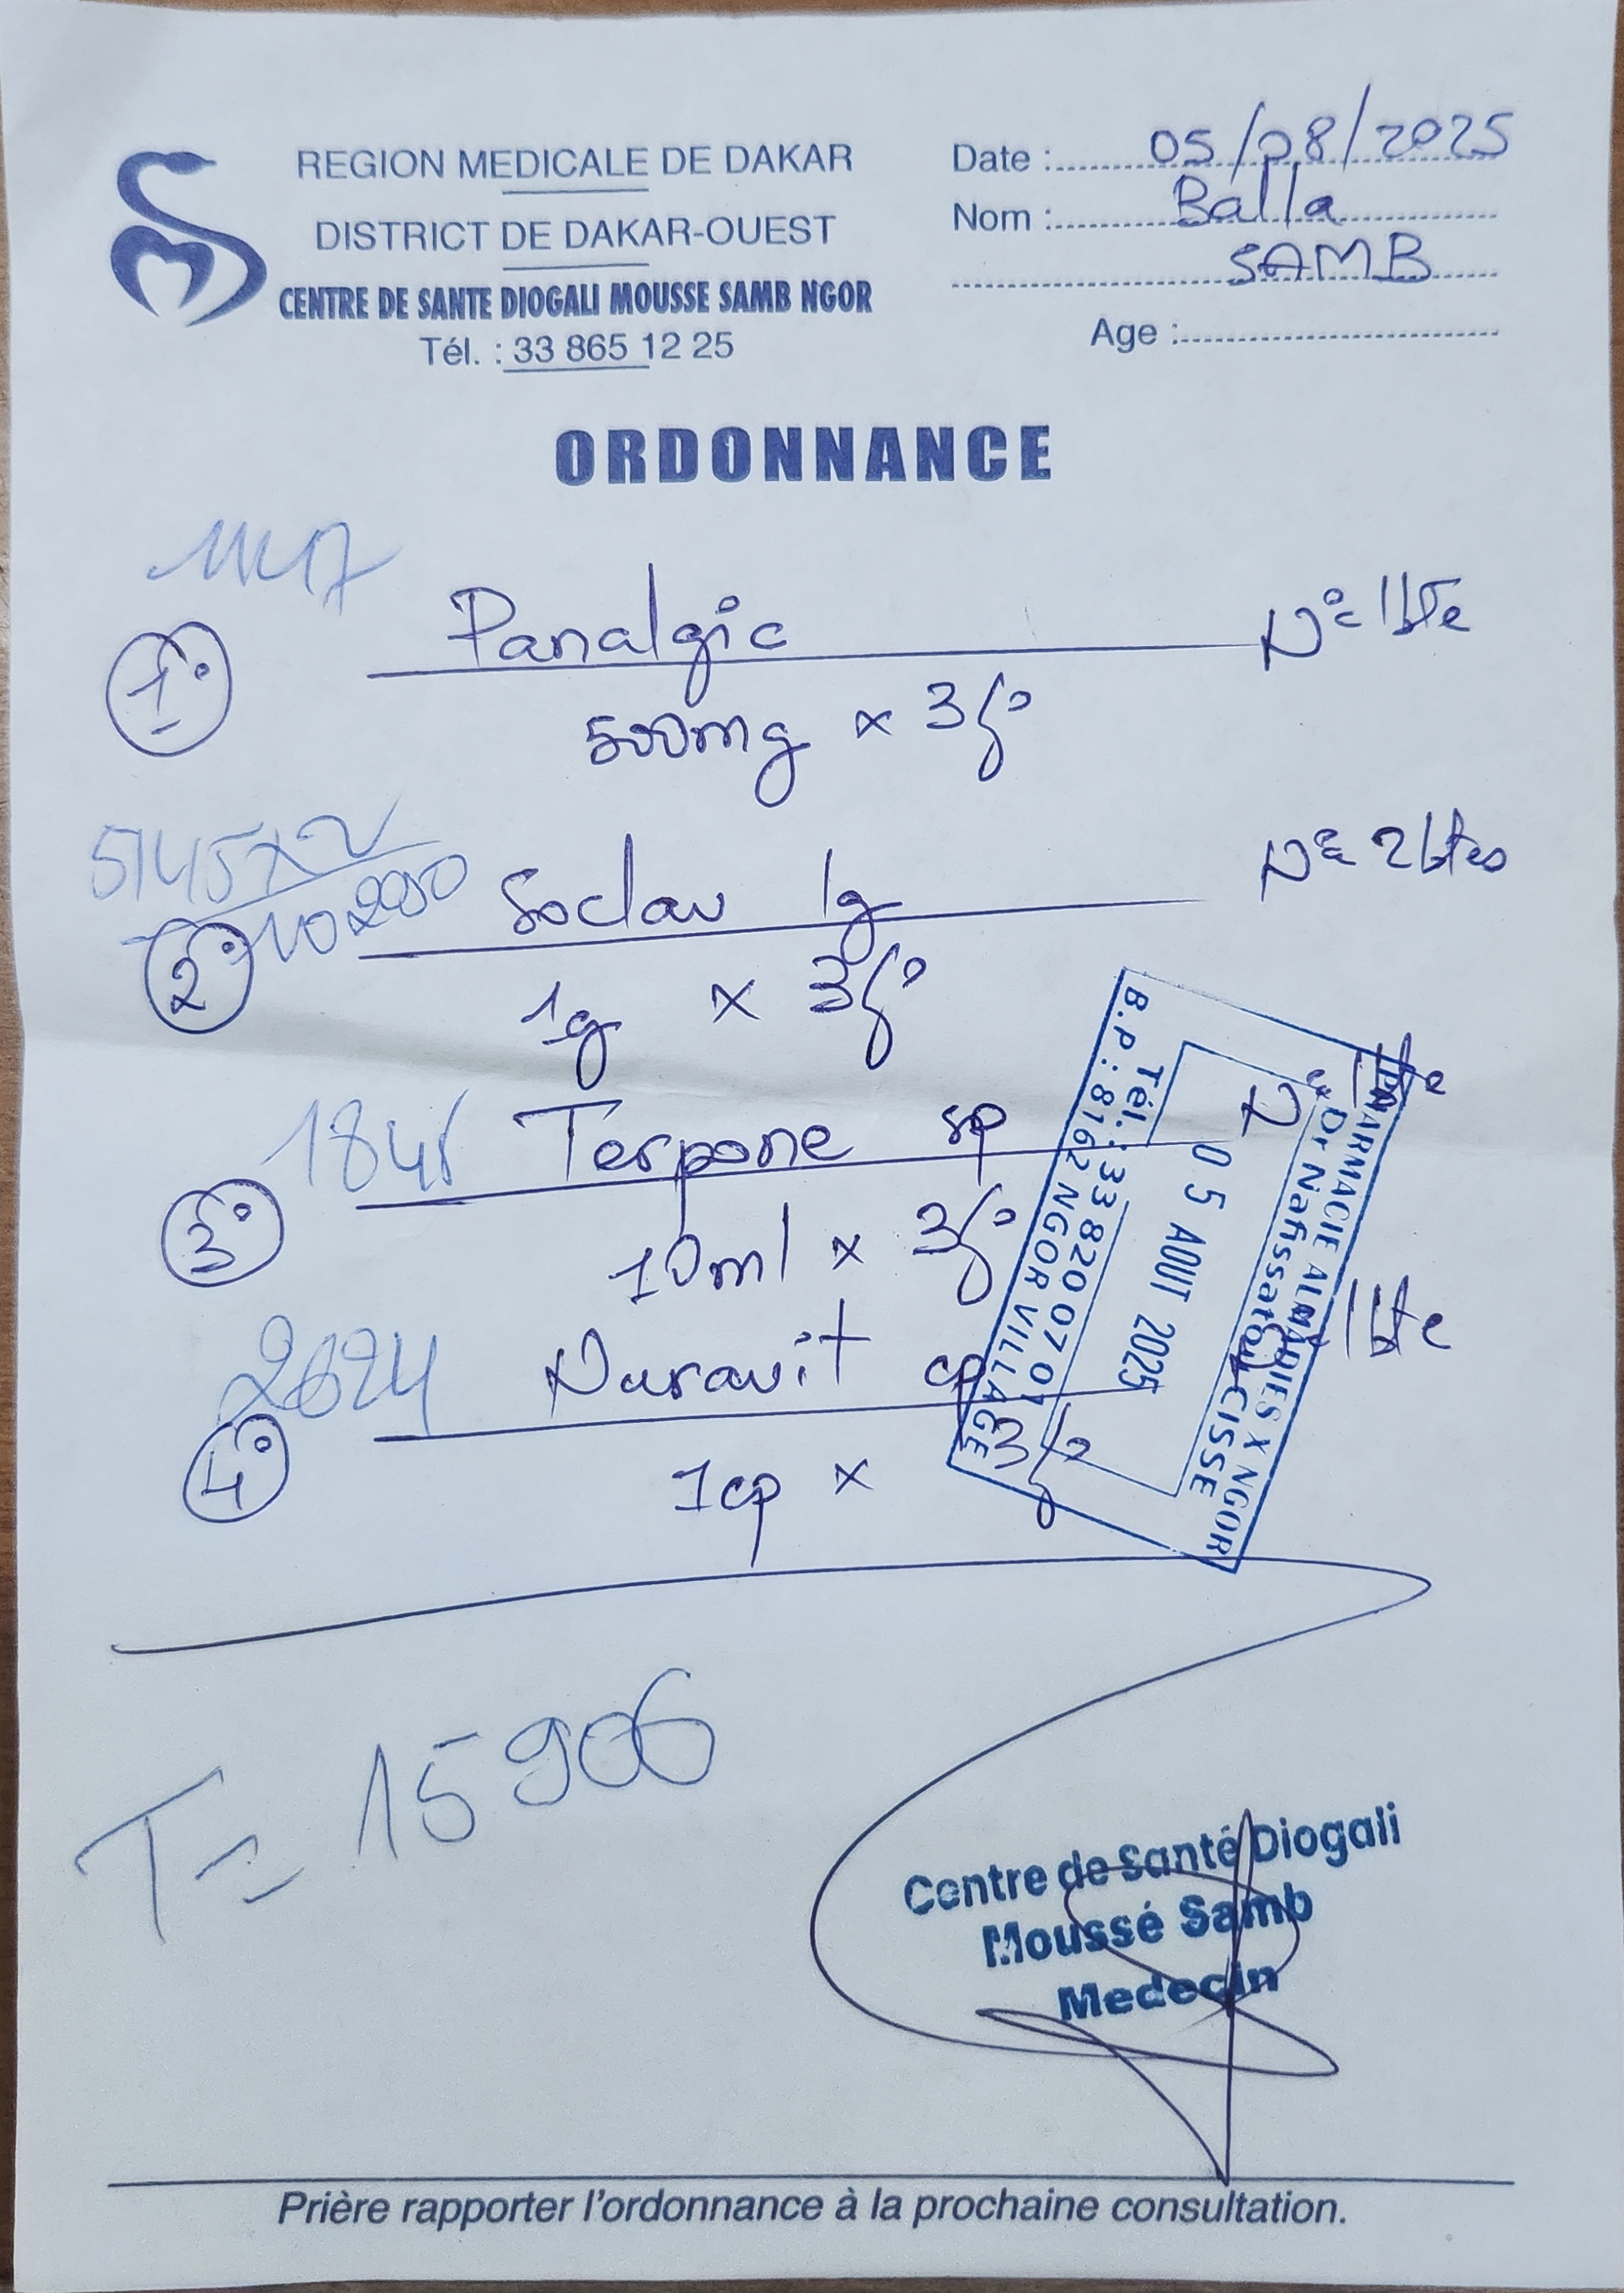 REGION MEDICALE DE DAKAR
DISTRICT DE DAKAR-OUEST
CENTRE DE SANTE DIOGALI MOUSSE SAMB NGOR
Tél. : 33 865 12 25
Date : 05/08/2025
Nom : Balla
SAMB
Age :
ORDONNANCE
1° Panalgic N° 1bte
500mg x 3f°
5145x2
10290
2° Soclav 1g N° 2btes
1g x 3f°
1845
3° Terpone sp
10ml x 3f°
2624
4° Nuravit cp 1bte
1cp x 3f°
PHARMACIE ALMADIES X NGOR
Dr Nafissatou CISSE
05 AOUT 2025
Tél.: 33 820 07 07
B.P : 8162 NGOR VILLAGE
T= 15906
Centre de Santé Diogali
Moussé Samb
Medecin
Prière rapporter l'ordonnance à la prochaine consultation.